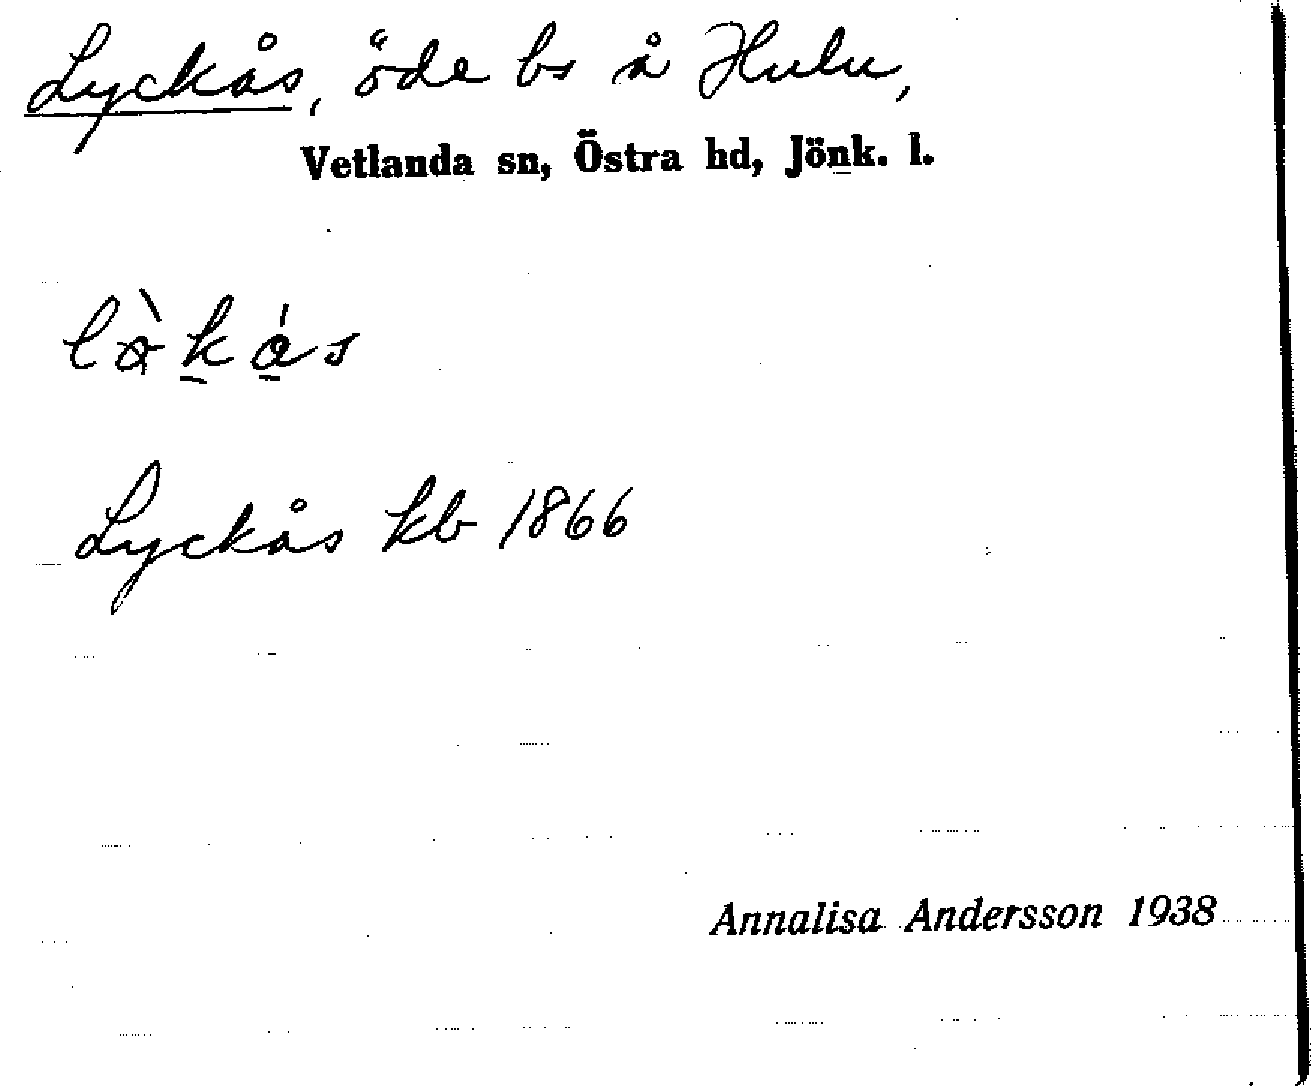 Lyckås, öde bs å Hulu,
Vetlanda sn, Östra hd, Jönk. l.
Lyckås kb 1866
Annalisa Andersson 1938